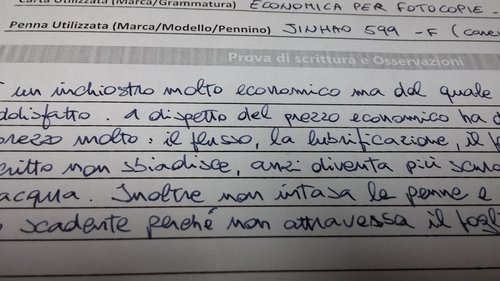 Carta Utilizzata (Marca/Grammatura) ECONOMICA PER FOTOCOPIE -
Penna Utilizzata (Marca/Modello/Pennino) JINHAO 599 -F
Prova di scrittura e Osservazioni
un inchiostro molto economico ma dal quale
A dispetto del prezzo economico ha
molto: il flusso, la lubrificazione, il
non sbiadisce, anzi diventa più
acqua. Inoltre non intasa le penne e
scadente perché non attraversa il